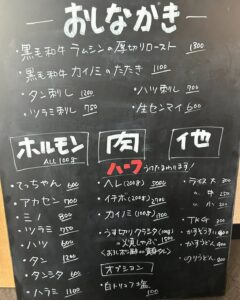 おしながき
・黒毛和牛 ラムシンの厚切りロースト 1800
・黒毛和牛 カイノミのたたき 1100
・タン刺し 1200
・ハツ刺し 900
・ツラミ刺し 750
・生センマイ 600
ホルモン
ALL 100g
・てっちゃん 600
・アカセン 700
・ミノ 800
・ツラミ 750
・ハツ 600
・タン 1200
・タンシタ 600
・ハラミ 1100
肉
ハーフ うけたまわります!
・ヘレ (200g)
・イチボ (200g)
・カイノミ (200g)
・うす切り (200g)
オプション
・白トリュフ塩 100
他
・ライス 大 300
・〃 中 250
・〃 小 200
・TKG
・かすうどん
・のりうどん